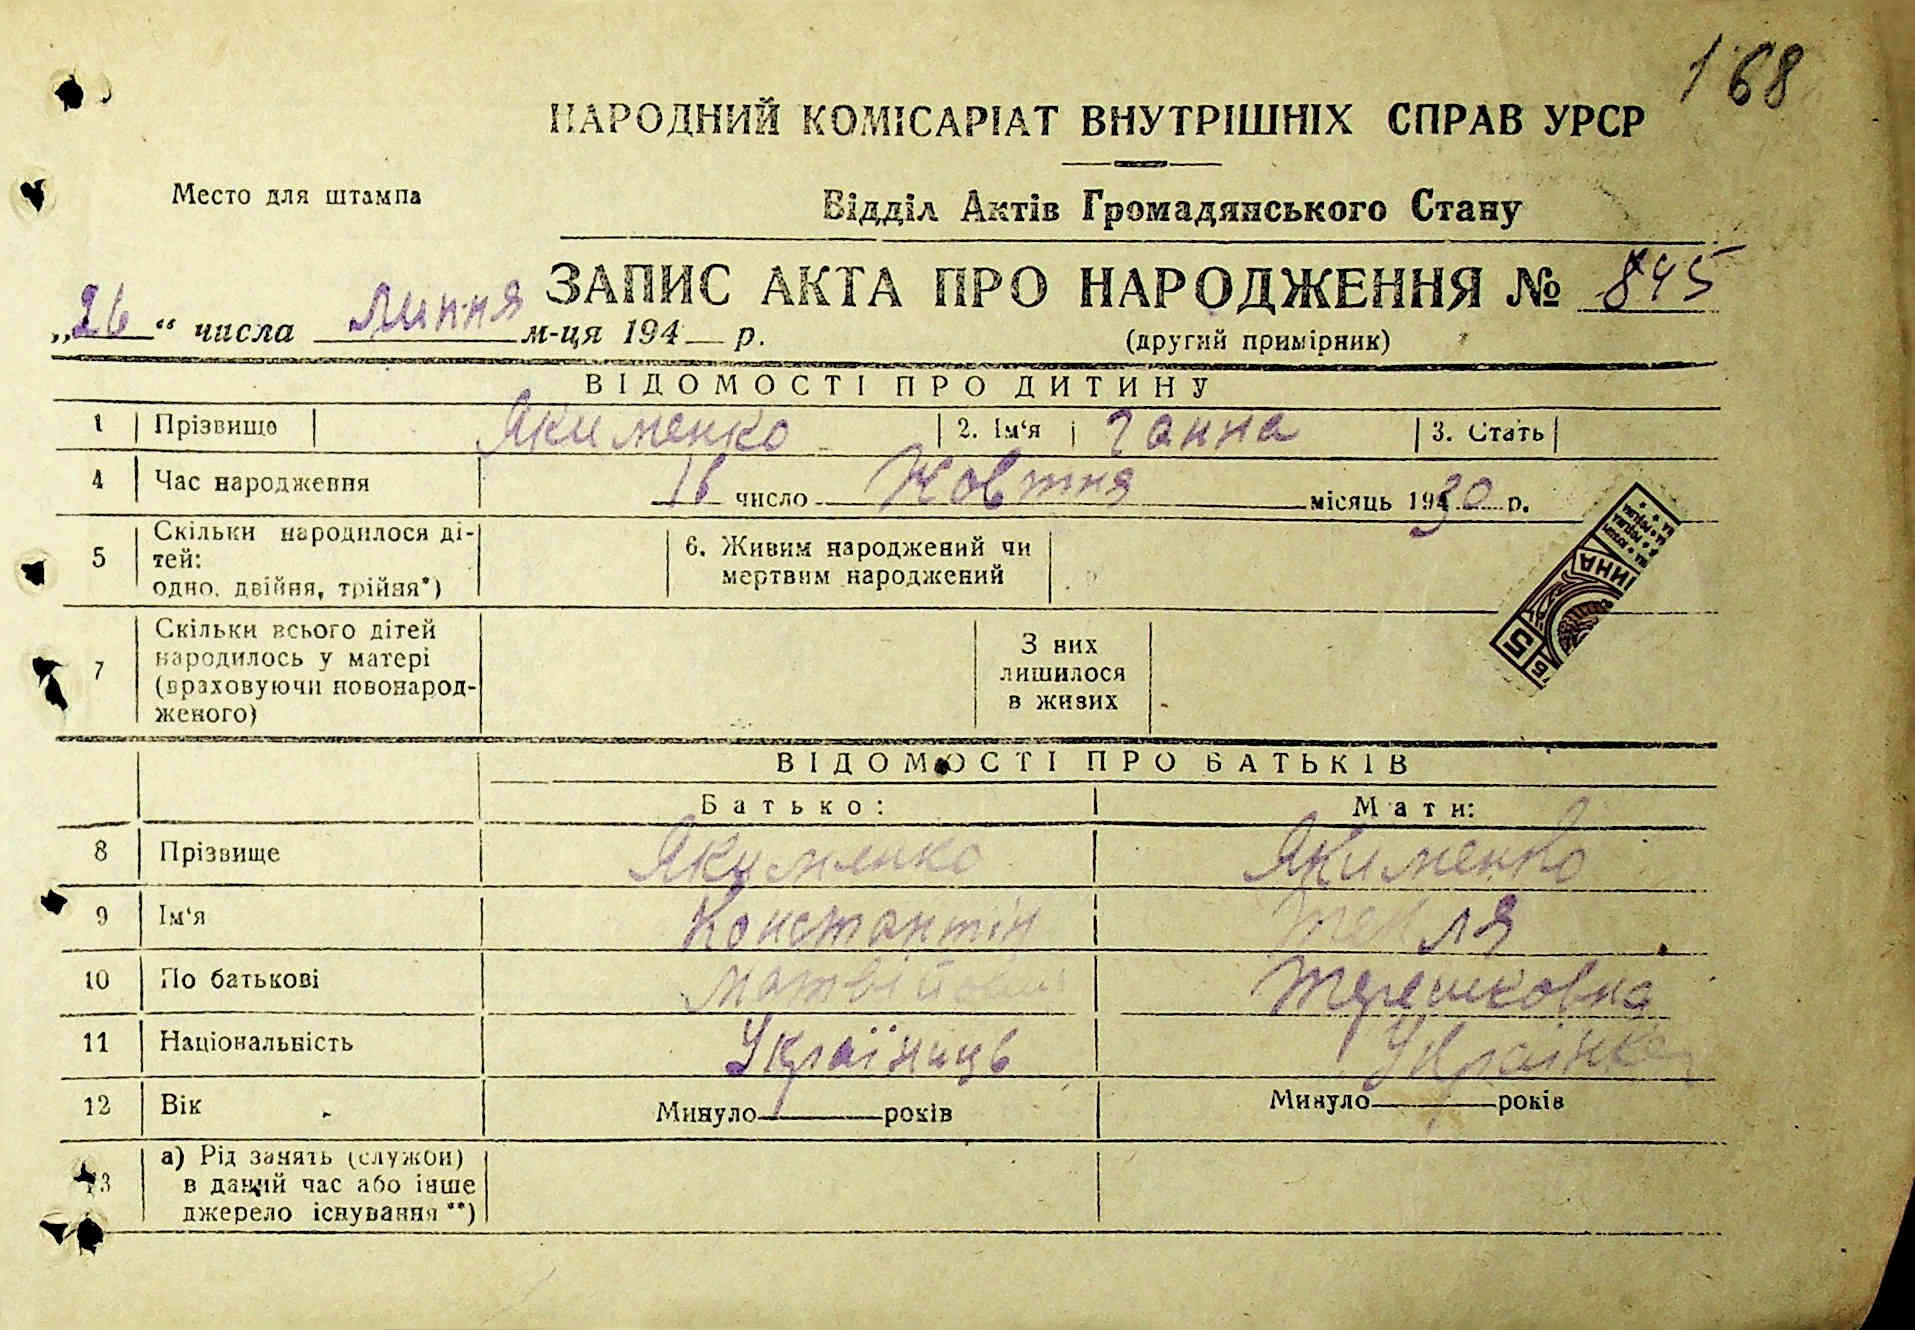 168
НАРОДНИЙ КОМІСАРІАТ ВНУТРІШНІХ СПРАВ УРСР
Место для штампа
Відділ Актів Громадянського Стану
ЗАПИС АКТА ПРО НАРОДЖЕННЯ № 845
„26“ числа липня м-ця 194 р.
(другий примірник)
ВІДОМОСТІ ПРО ДИТИНУ
1 Прізвище Якименко 2. Ім‘я Ганна 3. Стать
4 Час народження 16 число Жовтня місяць 1930 р.
5 Скільки народилося ді-
тей:
одно, двійня, трійня*)
6. Живим народжений чи
мертвим народжений
7 Скільки всього дітей
народилось у матері
(враховуючи новонарод-
женого)
З них
лишилося
в живих
5
ВІДОМОСТІ ПРО БАТЬКІВ
Батько: Мати:
8 Прізвище Якименко Якименко
9 Ім‘я Константін Текля
10 По батькові Матвійович Терешковна
11 Національність Українць Українка
12 Вік Минуло років Минуло років
13 а) Рід занять (служби)
в даний час або інше
джерело існування **)